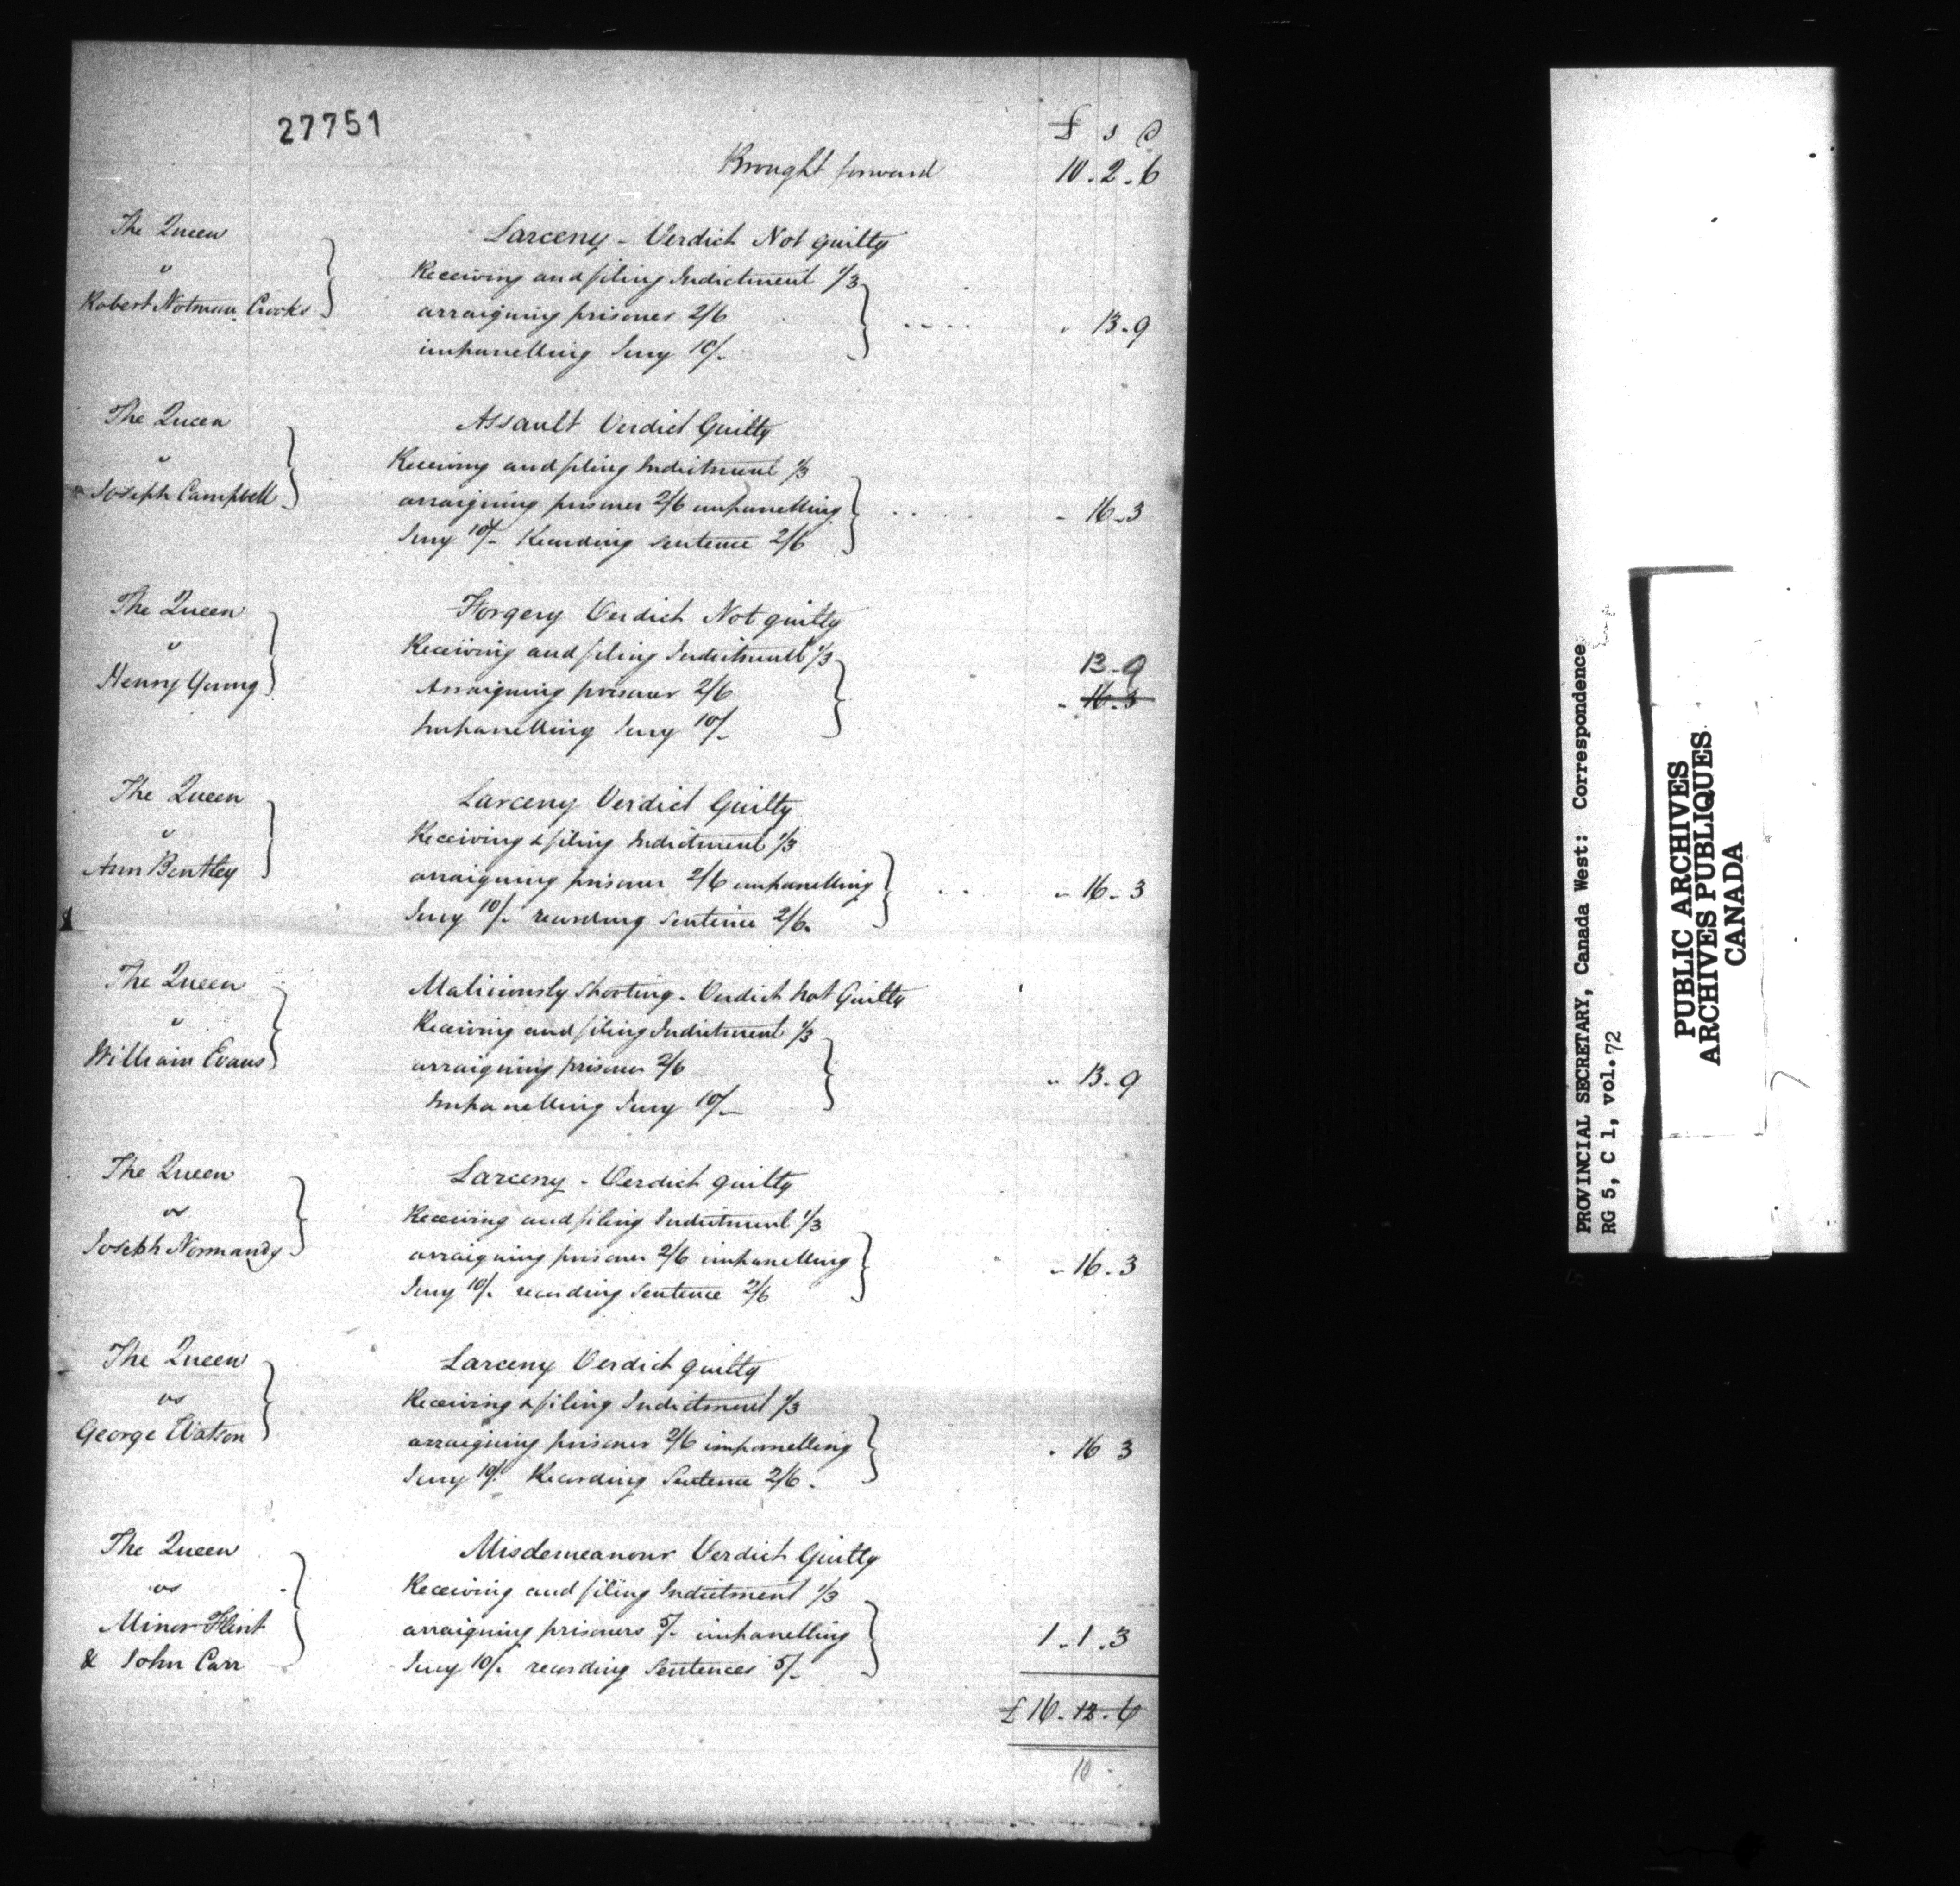 27751
£ s d
Brought forward 10.2.6
The Queen
"
Robert Notman Crooks
Larceny - Verdict Not guilty
Receiving and filing Indictment 1/3
arraigning prisoner 2/6
impanelling Jury 10/-
" 13-9
The Queen
"
Joseph Campbell
Assault Verdict Guilty
Receiving and filing Indictment 1/3
arraigning prisoner 2/6 impanelling
Jury 10/- Recording sentence 2/6
- 16-3
The Queen
"
Henry Young
Forgery Verdict Not guilty
Receiving and filing Indictment 1/3
Arraigning prisoner 2/6
Impanelling Jury 10/-
13-9
- 16-3
The Queen
"
Ann Bentley
Larceny Verdict Guilty
Receiving & filing Indictment 1/3
arraigning prisoner 2/6 impanelling
Jury 10/- recording Sentence 2/6.
- 16-3
The Queen
"
William Evans
Maliciously Shooting - Verdict not Guilty
Receiving and filing Indictment 1/3
arraigning prisoner 2/6
Impanelling Jury 10/-
" 13-9
The Queen
vs
Joseph Normandy
Larceny - Verdict guilty
Receiving and filing Indictment 1/3
arraigning prisoner 2/6 impanelling
Jury 10/- recording Sentence 2/6
- 16-3
The Queen
vs
George Watson
Larceny Verdict guilty
Receiving & filing Indictment 1/3
arraigning prisoner 2/6 impanelling
Jury 10/- Recording Sentence 2/6.
- 16 3
The Queen
vs
Minor Flint
& John Carr
Misdemeanour Verdict Guilty
Receiving and filing Indictment 1/3
arraigning prisoners 5/- impanelling
Jury 10/- recording Sentences 5/-
1.1.3
£16.12.6
10
PROVINCIAL SECRETARY, Canada West: Correspondence
RG 5, C 1, vol. 72
PUBLIC ARCHIVES
ARCHIVES PUBLIQUES
CANADA